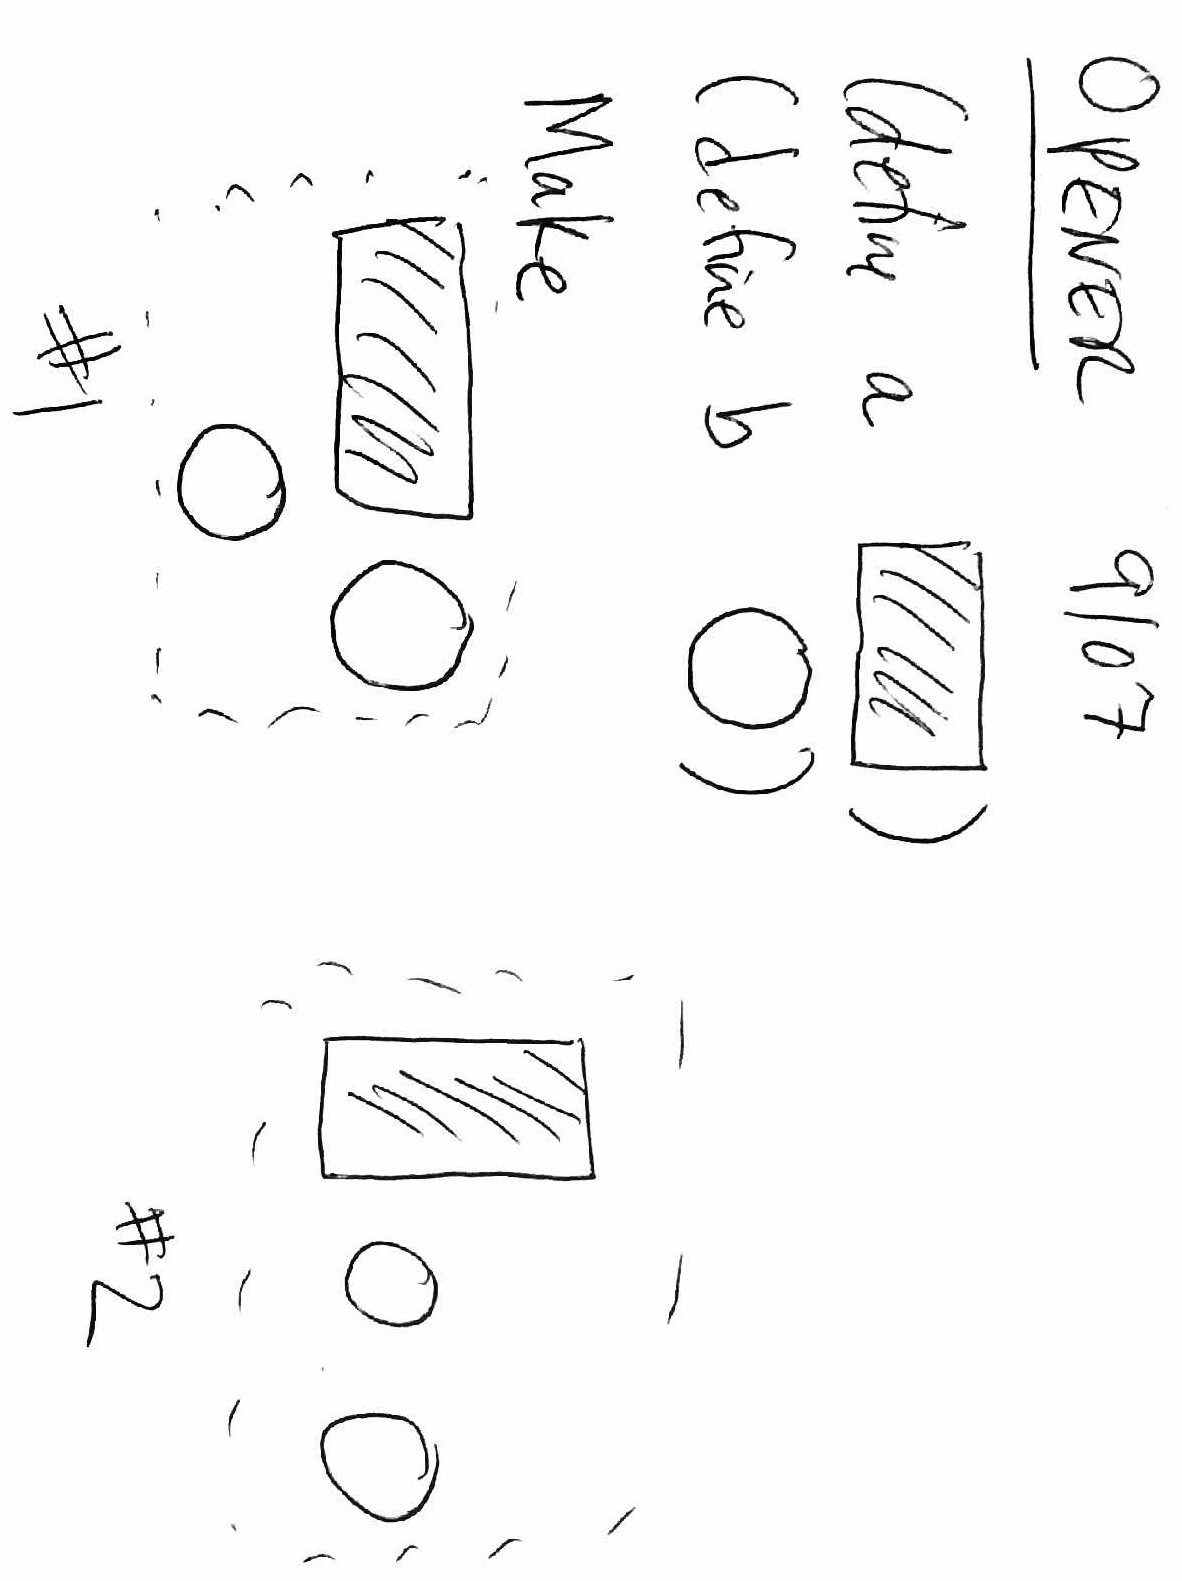 OPENER 9/07
(define a )
(define b )
Make
#1
#2